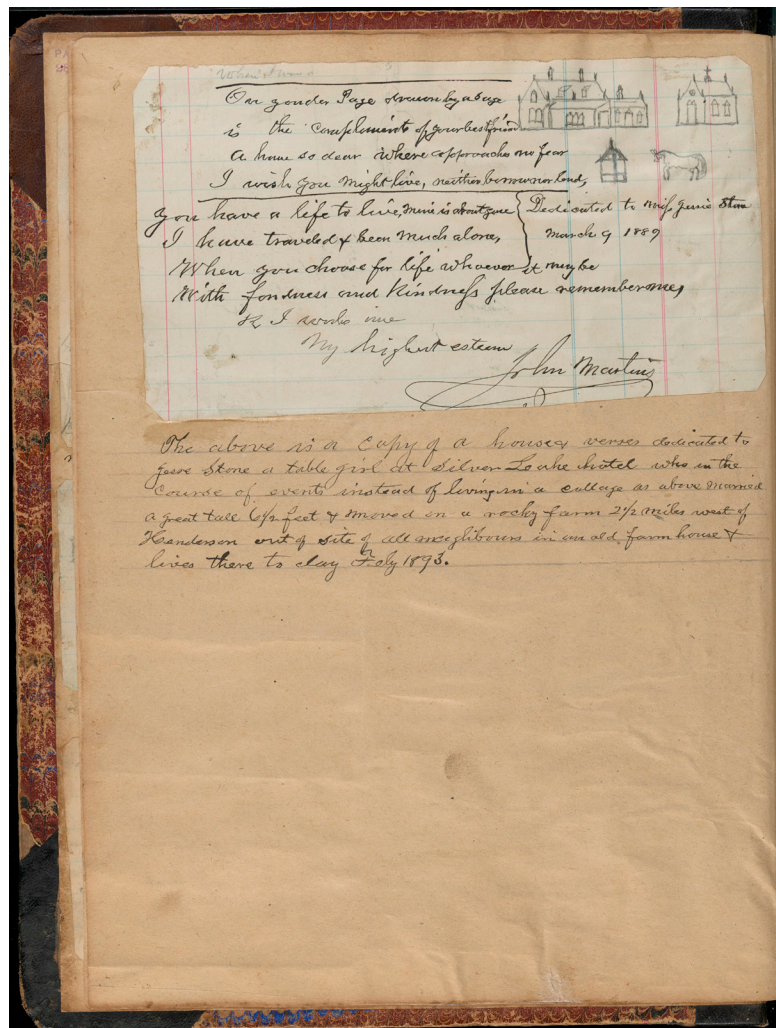 On yonder Page drawn by a Sage
is the compliments of your best friend
a home so dear where approaches no fear
I wish you might live, neither borrow nor lend,
you have a life to live, mine is about gone
Dedicated to miss Jessie Stone
I have traveled & been much alone,
March 9 1889
When you choose for life whoever it may be
With fondness and Kindness please remember me,
My highest esteem
John Martin
The above is a Copy of a house & verses dedicated to
Jesse Stone a table girl at Silver Leake hotel who in the
Course of events instead of living in a cottage as above Married
a great tall 6 1/2 feet & moved on a rocky farm 2 1/2 miles west of
Henderson out of site of all neighbours in an old farm house &
lives there to day Feby 1893.